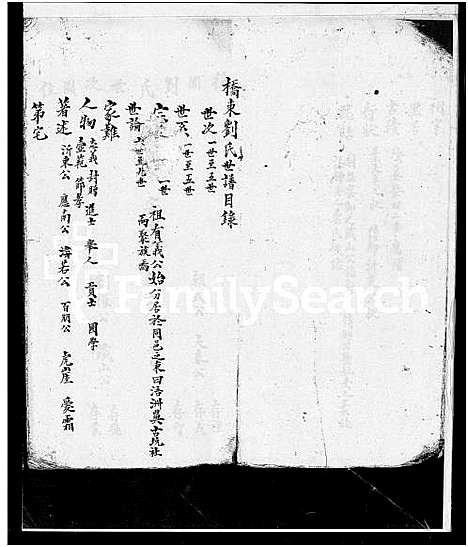 橋東劉氏世譜目錄
世次 一世至五世
世次 一世至五世
一世祖有義公始分居於同邑之東曰浯洲與古坑社
而聚族焉
世論 一世至九世
家難
人物 忠義 封贈 進士 舉人 貢士 國學
壼範 節孝
著述 沂東公 應南公 海若公 百朋公 虎崖 愛霜
第宅
FamilySearch